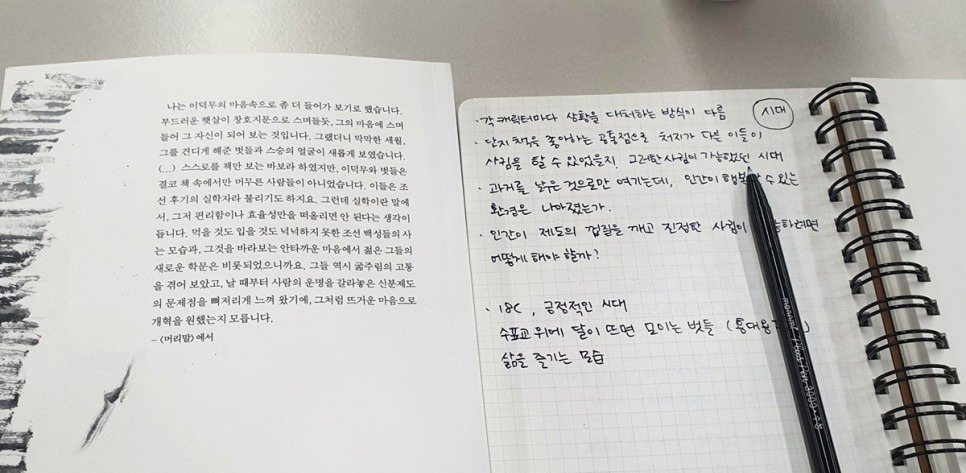 나는 이덕무의 마음속으로 좀 더 들어가 보기로 했습니다.
부드러운 햇살이 창호지문으로 스며들듯, 그의 마음에 스며
들어 그 자신이 되어 보는 것입니다. 그랬더니 막막한 세월,
그를 견디게 해준 벗들과 스승의 얼굴이 새롭게 보였습니다.
(…) 스스로를 책만 보는 바보라 하였지만, 이덕무와 벗들은
결코 책 속에서만 머무른 사람들이 아니었습니다. 이들은 조
선 후기의 실학자라 불리기도 하지요. 그런데 실학이란 말에
서, 그저 편리함이나 효율성만을 떠올리면 안 된다는 생각이
듭니다. 먹을 것도 입을 것도 넉넉하지 못한 조선 백성들의 사
는 모습과, 그것을 바라보는 안타까운 마음에서 젊은 그들의
새로운 학문은 비롯되었으니까요. 그들 역시 굶주림의 고통
을 겪어 보았고, 날 때부터 사람의 운명을 갈라놓은 신분제도
의 문제점을 뼈저리게 느껴 왔기에, 그처럼 뜨거운 마음으로
개혁을 원했는지 모릅니다.
– 〈머리말〉에서
시대
· 각 캐릭터마다 상황을 대처하는 방식이 다름
· 단지 책을 좋아하는 공통점으로 처지가 다른 이들이
사귐을 할 수 있었을지, 그러한 사귐이 가능했던 시대
· 과거를 낡은 것으로만 여기는데, 인간이 행복할 수 있는
환경은 나아졌는가.
· 인간이 제도의 껍질을 깨고 진정한 사귐이 하려면
어떻게 해야 할까?
· 18C, 긍정적인 시대
수표교 위에 달이 뜨면 모이는 벗들 (홍대용
삶을 즐기는 모습
monami Plus Pen 3000